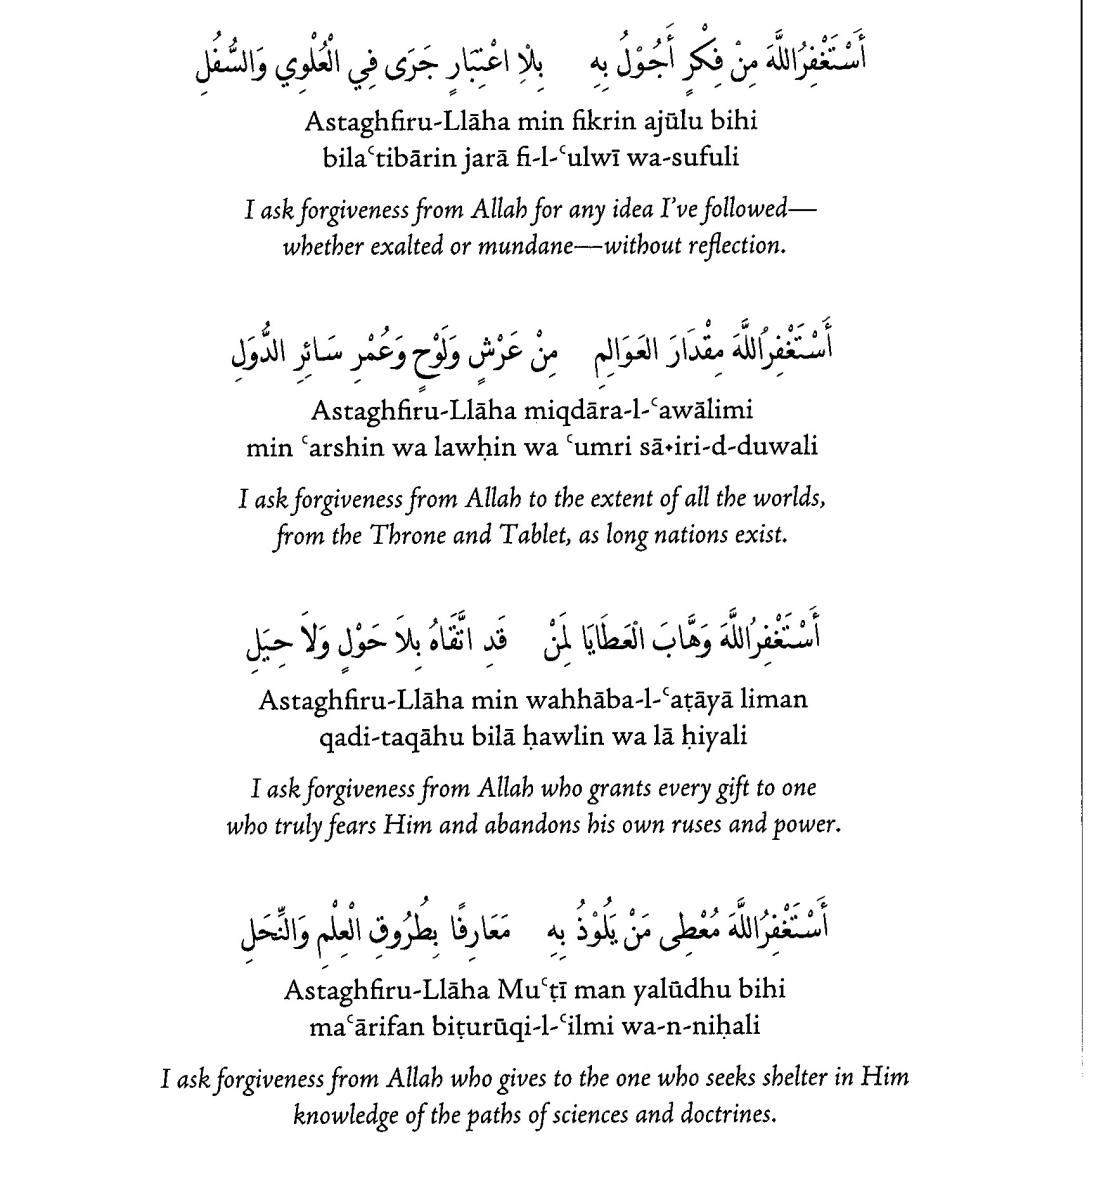 أَسْتَغْفِرُاللَّهَ مِنْ فِكْرٍ أَجُوْلُ بِهِ بِلْاِ اعْتِبَارٍ جَرَى فِي الْعُلْوِي وَالسُّفُلِ
Astaghfiru-Llāha min fikrin ajūlu bihi
bilaʿtibārin jarā fi-l-ʿulwī wa-sufuli
I ask forgiveness from Allah for any idea I've followed—
whether exalted or mundane—without reflection.
أَسْتَغْفِرُاللَّهَ مِقْدَارَ العَوَالِمِ مِنْ عَرْشٍ وَلَوْحٍ وَعُمْرِ سَائِرِ الدُّوَلِ
Astaghfiru-Llāha miqdāra-l-ʿawālimi
min ʿarshin wa lawḥin wa ʿumri sā•iri-d-duwali
I ask forgiveness from Allah to the extent of all the worlds,
from the Throne and Tablet, as long nations exist.
أَسْتَغْفِرُاللَّهَ وَهَّابَ الْعَطَايَا لِمَنْ قَدِ اتَّقَاهُ بِلاَ حَوْلٍ وَلاَ حِيَلِ
Astaghfiru-Llāha min wahhāba-l-ʿaṭāyā liman
qadi-taqāhu bilā ḥawlin wa lā ḥiyali
I ask forgiveness from Allah who grants every gift to one
who truly fears Him and abandons his own ruses and power.
أَسْتَغْفِرُاللَّهَ مُعْطِى مَنْ يَلُوْذُ بِهِ مَعَارِفًا بِطُرُوقِ الْعِلْمِ وَالنِّحَلِ
Astaghfiru-Llāha Muʿṭī man yalūdhu bihi
maʿārifan biṭurūqi-l-ʿilmi wa-n-niḥali
I ask forgiveness from Allah who gives to the one who seeks shelter in Him
knowledge of the paths of sciences and doctrines.